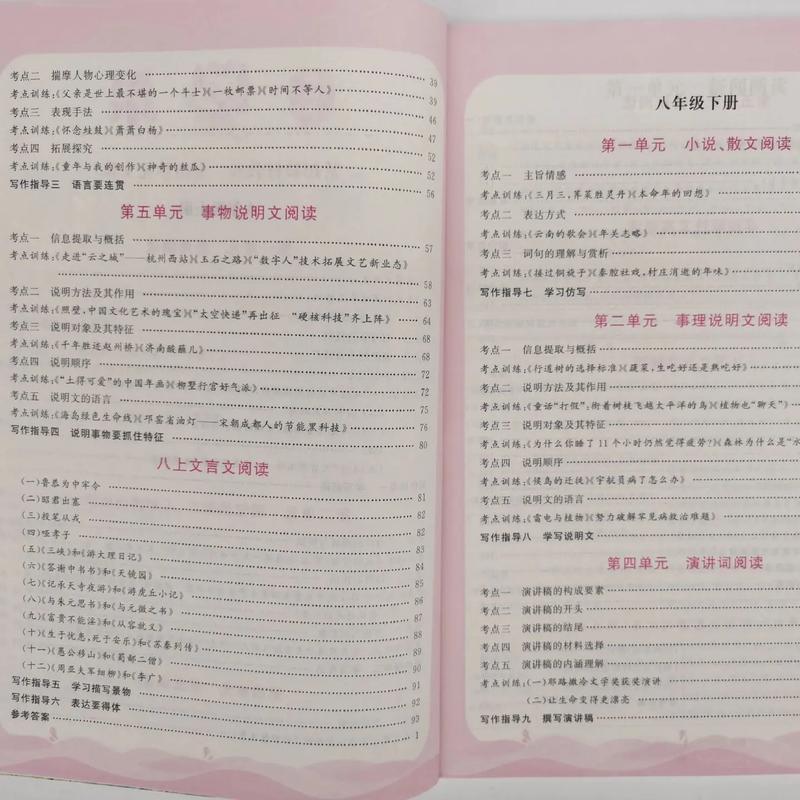 考点二 揣摩人物心理变化 39
考点训练:《父亲是世上最不堪的一个斗士》《一枚邮票》《时间不等人》 39
考点三 表现手法 46
考点训练:《怀念蛙鼓》《萧萧白杨》 47
考点四 拓展探究 52
考点训练:《童年与我的创作》《神奇的丝瓜》 52
写作指导三 语言要连贯 56
第五单元 事物说明文阅读
考点一 信息提取与概括 57
考点训练:《走进“云之城”——杭州西站》《玉石之路》《“数字人”技术拓展文艺新业态》
58
考点二 说明方法及其作用 63
考点训练:《照壁,中国文化艺术的瑰宝》《“太空快递”再出征 “硬核科技”齐上阵》 64
考点三 说明对象及其特征 68
考点训练:《千年胜迹赵州桥》《济南酸蘸儿》 68
考点四 说明顺序 72
考点训练:《“土得可爱”的中国年画》《柳墅行宫好气派》 72
考点五 说明文的语言 75
考点训练:《海岛绿色生命线》《邛窑省油灯——宋朝成都人的节能黑科技》 76
写作指导四 说明事物要抓住特征 80
八上文言文阅读
(一)鲁恭为中牟令 81
(二)昭君出塞 82
(三)投笔从戎 82
(四)哑孝子 82
(五)《三峡》和《游大理日记》 83
(六)《答谢中书书》和《天镜园》 84
(七)《记承天寺夜游》和《游虎丘小记》 85
(八)《与朱元思书》和《与元微之书》 86
(九)《富贵不能淫》和《从容就义》 87
(十)《生于忧患,死于安乐》和《苏秦列传》 88
(十一)《愚公移山》和《蜀鄙二僧》 89
(十二)《周亚夫军细柳》和《李广》 90
写作指导五 学习描写景物 91
写作指导六 表达要得体 92
参考答案 93
1
八年级下册
第一单元 小说、散文阅读
考点一 主旨情感
考点训练:《三月三,荠菜胜灵丹》《本命年的回想》
考点二 表达方式
考点训练:《云南的歌会》《年关志略》
考点三 词句的理解与赏析
考点训练:《接过铜旋子》《秦腔社戏,村庄消逝的年味》
写作指导七 学习仿写
第二单元 事理说明文阅读
考点一 信息提取与概括
考点训练:《行道树的选择标准》《蔬菜,生吃好还是熟吃好》
考点二 说明方法及其作用
考点训练:《童话“打假”:衔着树枝飞越太平洋的鸟》《植物也“聊天”》
考点三 说明对象及其特征
考点训练:《为什么你睡了11个小时仍然觉得疲劳?》《森林为什么是“水
考点四 说明顺序
考点训练:《候鸟的迁徙》《宇航员病了怎么办》
考点五 说明文的语言
考点训练:《雷电与植物》《努力破解罕见病救治难题》
写作指导八 学写说明文
第四单元 演讲词阅读
考点一 演讲稿的构成要素
考点二 演讲稿的开头
考点三 演讲稿的结尾
考点四 演讲稿的材料选择
考点五 演讲稿的内涵理解
考点训练:(一)耶路撒冷文学奖获奖演讲
(二)让生命变得更漂亮
写作指导九 撰写演讲稿